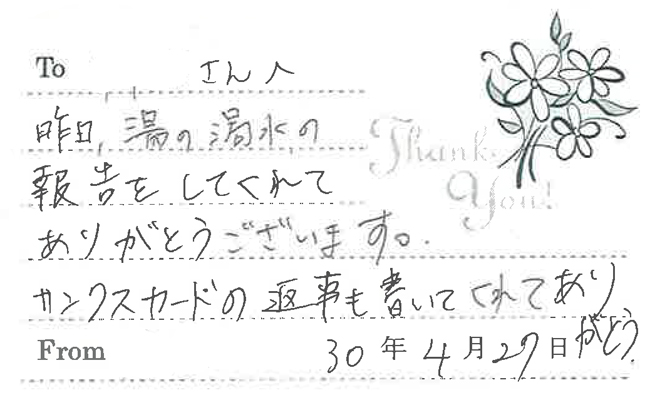 To さんへ
Thank You!
昨日、湯の漏水の
報告をしてくれて
ありがとうございます。
サンクスカードの返事も書いてくれてあり
がとう。
From 30年4月27日